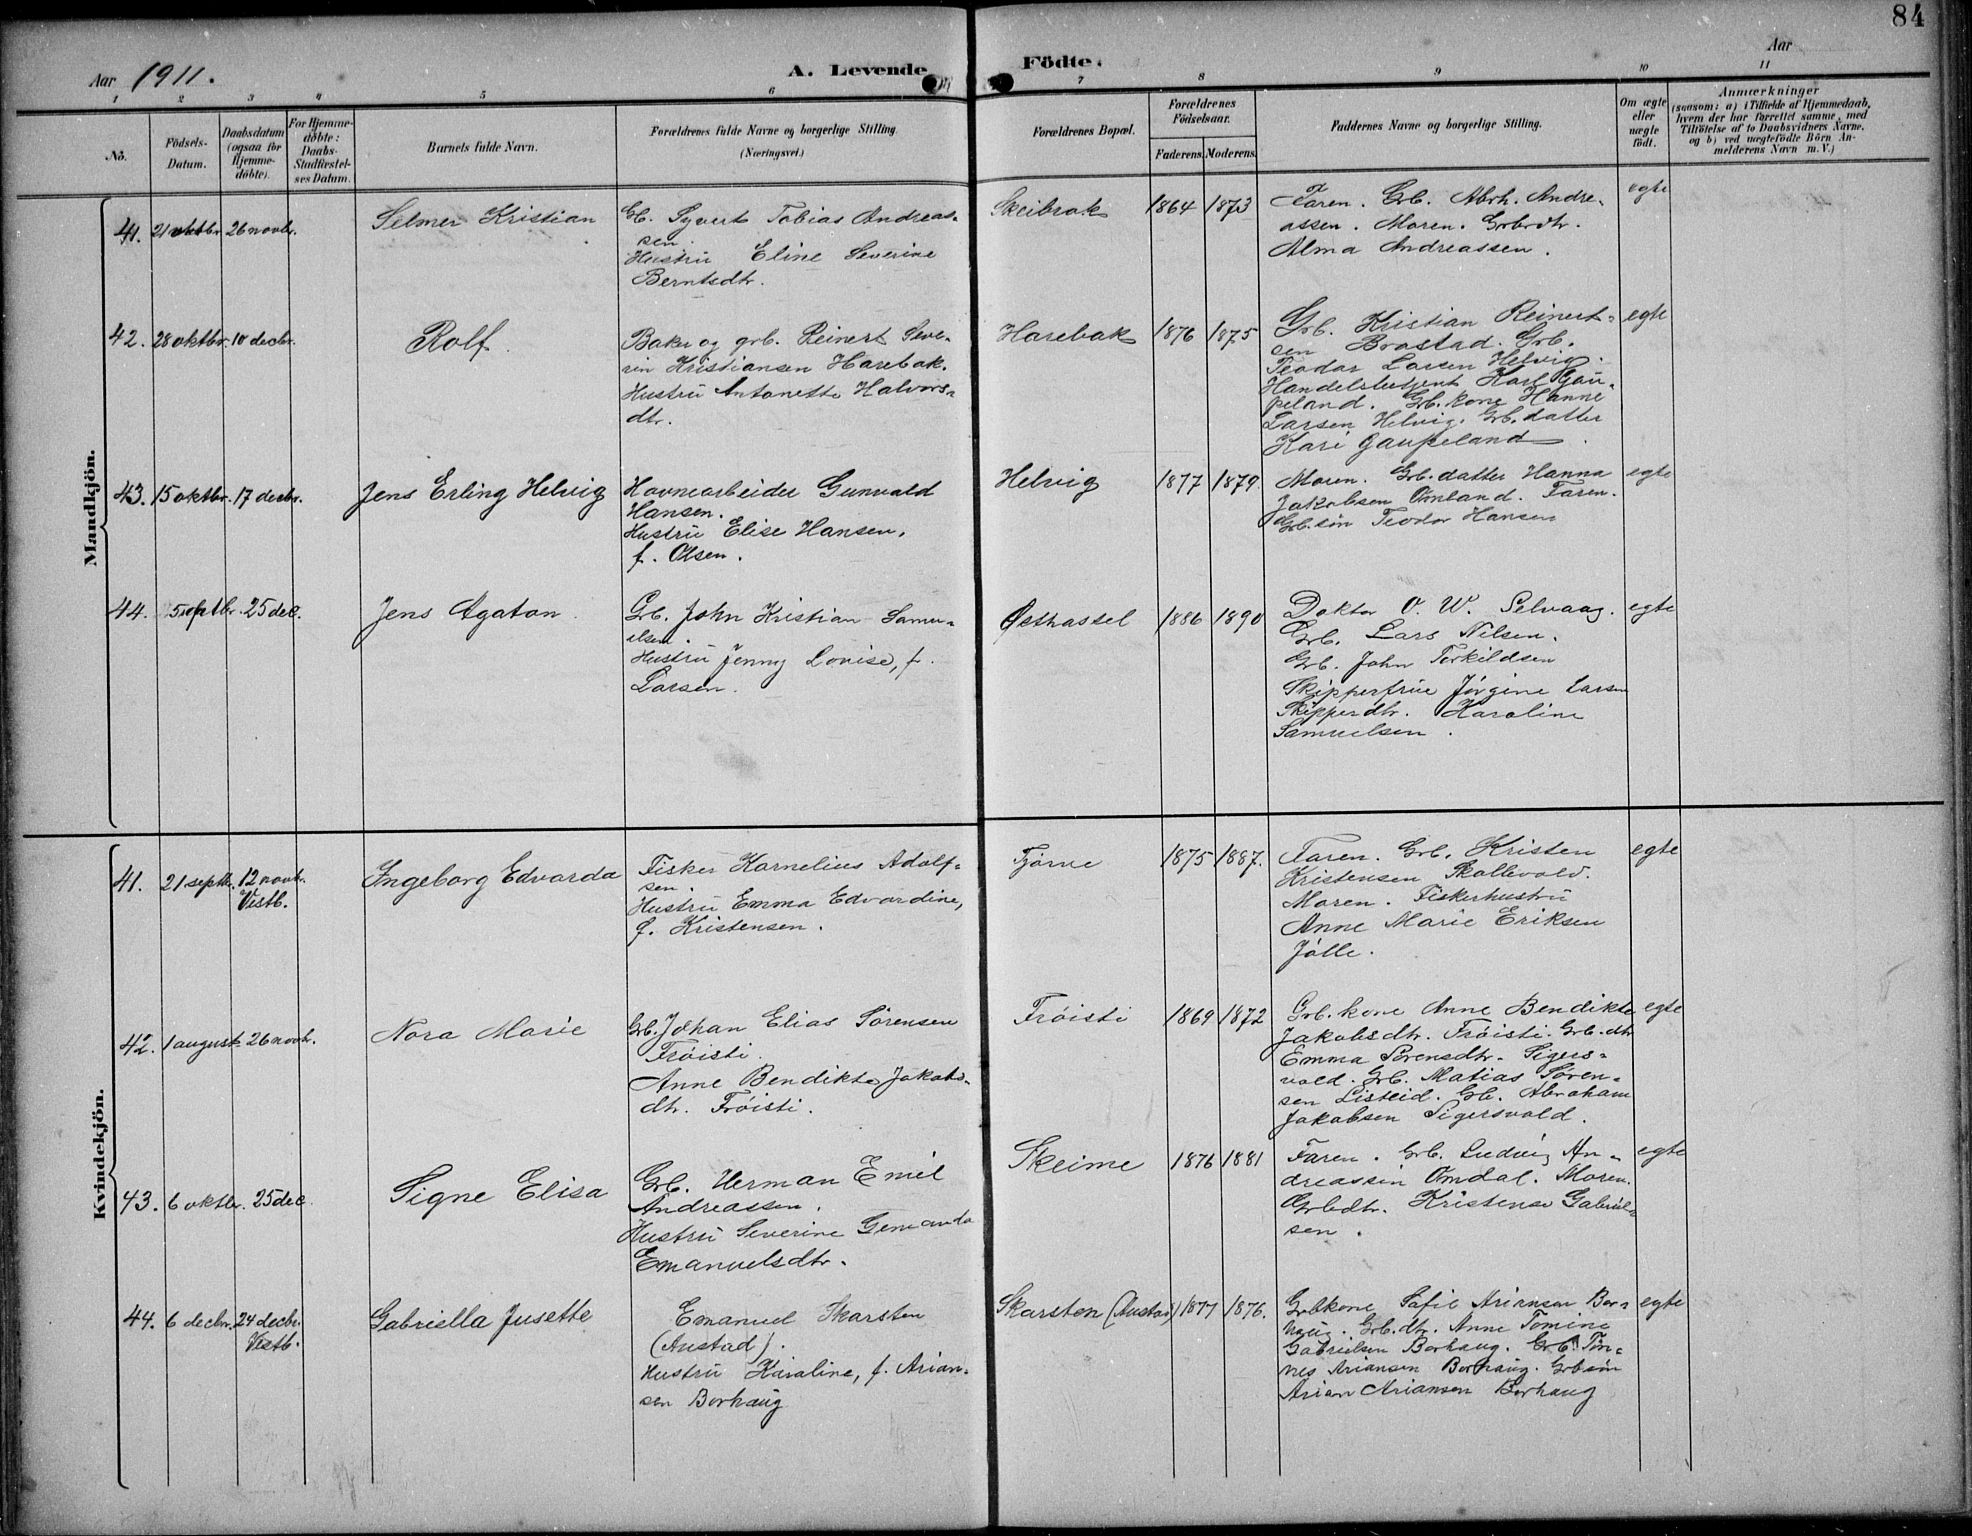 84
Aar 1911.
A. Levende
Födte.
Aar
1
2
3
4
5
6
7
8
9
10
11
No.
Födsels-
Datum.
Daabsdatum
(ogsaa for
Hjemme-
döbte).
For Hjemme-
döbte:
Daabs-
Stadfæstel-
ses Datum.
Barnets fulde Navn.
Forældrenes fulde Navne og borgerlige Stilling.
(Næringsvei.)
Forældrenes Bopæl.
Forældrenes
Födselsaar.
Faderens.
Moderens.
Faddernes Navne og borgerlige Stilling.
Om ægte
eller
uægte
födt.
Anmærkninger
(saasom: a) i Tilfælde af Hjemmedaab,
hvem der har forrettet samme, med
Tilföielse af to Daabsvidners Navne,
og b) ved uægtefödte Börn An-
melderens Navn m. V.)
Mandkjön.
41. 21 oktbr. 26 novbr.
Selmer Kristian
Gb. Syvert Tobias Andreas-
sen.
Hustru Eline Severine
Berntsdtr.
Skeibrok
1864 1873
Faren. Grb. Abrh. Andre-
assen. Moren. Grbrdtr.
Alma Andreassen.
egte
42. 28 oktbr. 10 decbr.
Rolf.
Baker og grb. Reinert Seve-
rin Kristiansen Harebak.
Hustru Antonette Halvors-
dtr.
Harebak
1876 1875
Grb. Kristian Reinert-
sen Brastad. Grb.
Teodor Larsen Helvig.
Handelsbetjent Karl Gau-
peland. Grb. kone Hanne
Larsen Helvig. Grb. datter
Kari Gaupeland.
egte
43. 15 oktbr. 17 decbr.
Jens Erling Helvig
Havnearbeider Gunvald
Hansen.
Hustru Elise Hansen,
f. Olsen.
Helvig
1877 1879.
Moren. Grb. datter Hanna
Jakobsen Omland. Faren.
Grb. søn Teodor Hansen
egte
44. 5 septbr. 25 dec.
Jens Agaton.
Grb. John Kristian Samu-
elsen.
Hustru Jenny Lovise, f.
Larsen.
Østhassel
1886 1890
Doktor O. W. Selvaag.
Grb. Lars Nilsen.
Grb. John Terkildsen
Skipperfrue Jørgine Larsen
Skipperdtr. Karoline
Samuelsen.
egte
Kvindekjön.
41. 21 septbr. 12 novbr.
Vestb.
Ingeborg Edvarda
Fisker Kornelius Adolf-
sen.
Hustru Emma Edvardine,
f. Kristensen.
Tjørve
1875 1887.
Faren. Grb. Kristen
Kristensen Skollevold.
Moren. Fiskerhustru
Anne Marie Eriksen
Jølle.
egte
42. 1 august. 26 novbr.
Nora Marie
Grb. Johan Elias Sørensen
Frøisti.
Anne Bendikte Jakobs-
dtr. Frøisti.
Frøisti
1869 1872
Grb. kone Anne Bendikte
Jakobsdtr. Frøisti. Grb. dtr
Emma Sørensdtr. Sigers-
vold. Grb. Matias Søren-
sen Listeid. Grb. Abraham
Jakobsen Sigersvold.
egte
43. 6 oktbr. 25 dec.
Signe Elisa
Grb. Herman Emil
Andreassen.
Hustru Severine
Emanuelsdtr.
Skeime
1876 1881
Faren. Grb. Ludvig An-
dreassen Omdal. Moren.
Grbdtr. Kristense Gabriel-
sen.
egte
44. 6 decbr. 24 decbr.
Vestb.
Gabriella Jusette
Emanuel Skarsten
(Austad).
Hustru Karoline, f. Arian-
sen Borhaug
Skarsten (Austad) 1877 1876.
Grbkone Sofie Ariansen Bor-
haug. Grb. dtr. Anne Tomine
Gabrielsen Borhaug. Grb. Tøn-
nes Ariansen Borhaug. Grbsøn
Arian Ariansen Borhaug
egte